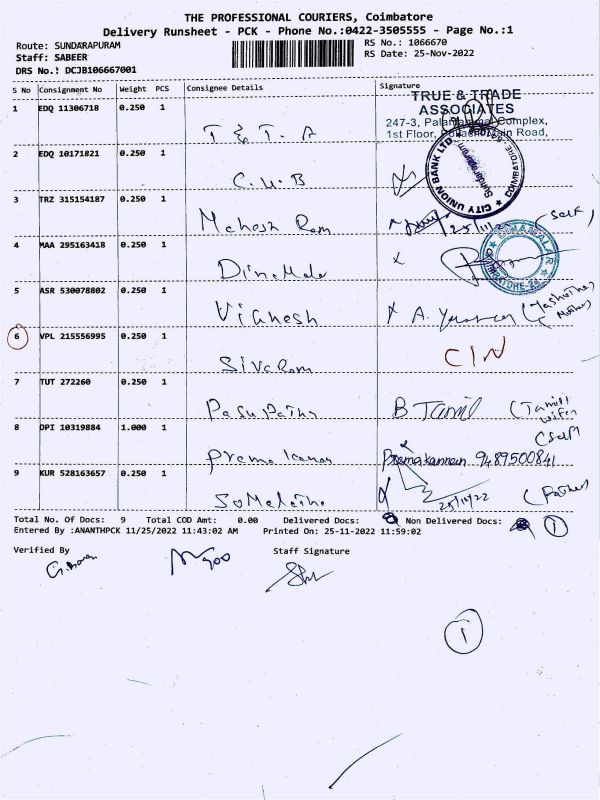 THE PROFESSIONAL COURIERS, Coimbatore
Delivery Runsheet - PCK - Phone No.:0422-3505555 - Page No.:1
Route: SUNDARAPURAM
RS No.: 1066670
Staff: SABEER
RS Date: 25-Nov-2022
DRS No.: DCJB106667001
S No Consignment No Weight PCS Consignee Details Signature
1 EDQ 11306718 0.250 1 T & T. A
TRUE & TRADE
ASSOCIATES
247-3, Complex,
1st Floor, Road,
2 EDQ 10171821 0.250 1 C.U.B
CITY UNION BANK LTD COIMBATORE
Sundarapuram
3 TRZ 315154187 0.250 1 Mahesh Ram 25/11/22 (Self)
4 MAA 295163418 0.250 1 Dinamala
DINAMALAR
COIMBATORE
5 ASR 530078802 0.250 1 Vignesh A.
6 VPL 215556995 0.250 1 SivaRam C/N
7 TUT 272260 0.250 1 Pasupathy B Tamil (Tamil wife)
8 DPI 10319884 1.000 1 Premakanan Premakannan 9489500841 (Self)
9 KUR 528163657 0.250 1 25/11/22 (Father)
Total No. Of Docs: 9 Total COD Amt: 0.00 Delivered Docs: 8 Non Delivered Docs: 1
Entered By :ANANTHPCK 11/25/2022 11:43:02 AM Printed On: 25-11-2022 11:59:02
Verified By Staff Signature
1